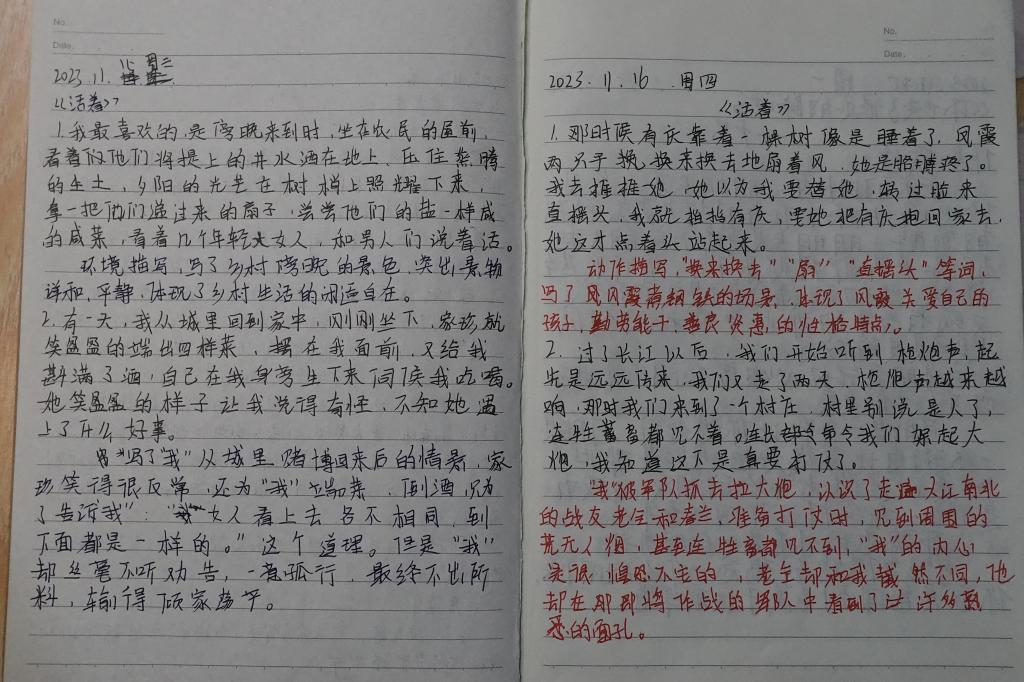 No.
Date.
2023.11.15 周三
《活着》
1.我最喜欢的是傍晚来到时,坐在农民的屋前,
看着他们将提上的井水洒在地上,压住蒸腾
的尘土,夕阳的光芒在树梢上照耀下来,
拿一把他们递过来的扇子,尝尝他们的盐一样咸
的咸菜,看着几个年轻女人,和男人们说着话。
环境描写,写了乡村傍晚的景色,突出景物
详和,平静,体现了乡村生活的闲适自在。
2.有一天,我从城里回到家中,刚刚坐下,家珍就
笑盈盈的端出四样菜,摆在我面前,又给我
斟满了酒,自己在我身旁坐下来伺候我吃喝。
她笑盈盈的样子让我觉得奇怪,不知她遇
上了什么好事。
写了“我”从城里赌博回来后的情景,家
珍笑得很反常,还为“我”端菜,倒酒,只为
了告诉我”:“女人看上去各不相同,到
下面都是一样的。”这个道理。但是“我”
却丝毫不听劝告,一意孤行,最终不出所
料,输得倾家荡产。
No.
Date.
2023.11.16 周四
《活着》
1.那时候有庆靠着一棵树像是睡着了,凤霞
两只手换来换去地扇着风,她是胳膊疼了。
我去推推她,她以为我要替她,转过脸来
直摇头,我就指指有庆,要她把有庆抱回家去,
她这才点着头站起来。
动作描写,“换来换去”“扇”“直摇头”等词,
写了凤霞煮钢铁的场景,体现了凤霞关爱自己的
孩子,勤劳能干,善良贤惠的性格特点。
2.过了长江以后,我们开始听到枪炮声,起
先是远远传来,我们又走了两天,枪炮声越来越
响,那时我们来到了一个村庄,村里别说是人了,
连牲畜都见不着。连长命令我们架起大
炮,我知道这下是真要打仗了。
“我”被军队抓去拉大炮,认识了走遍大江南北
的战友老全和春生,准备打仗时,见到周围的
荒无人烟,甚至连牲畜都见不到,“我”的内心
是很惶恐不安的,老全却和我截然不同,他
却在那即将作战的军队中看到了许多熟
悉的面孔。